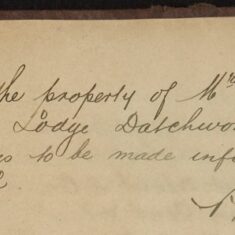 the property of Mrs
Lodge Datchwo
s to be made inf